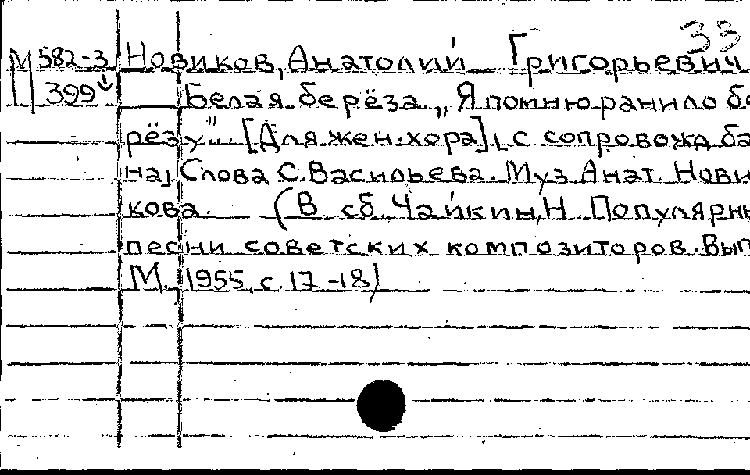 33
М 582-3 Новиков, Анатолий Григорьевич
399 Белая берёза „Я помню ранило бе
рёзу" [Для жен. хора], с сопровожд ба
на, Слова С. Васильева. Муз Анат. Нови
кова. (В сб. Чайкин, Н Популярны
песни советских композиторов. Вып
М. 1955, с. 17-18)